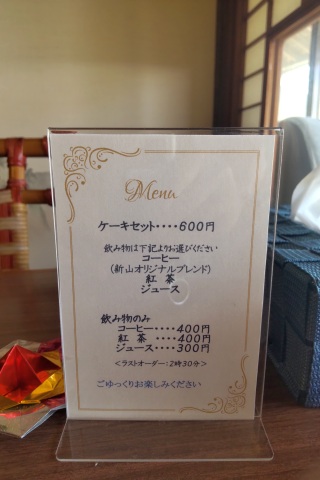 Menu
ケーキセット････600円
飲み物は下記よりお選びください
コーヒー
(新山オリジナルブレンド)
紅 茶
ジュース
飲み物のみ
コーヒー････400円
紅 茶 ････400円
ジュース････300円
<ラストオーダー:2時30分>
ごゆっくりお楽しみください